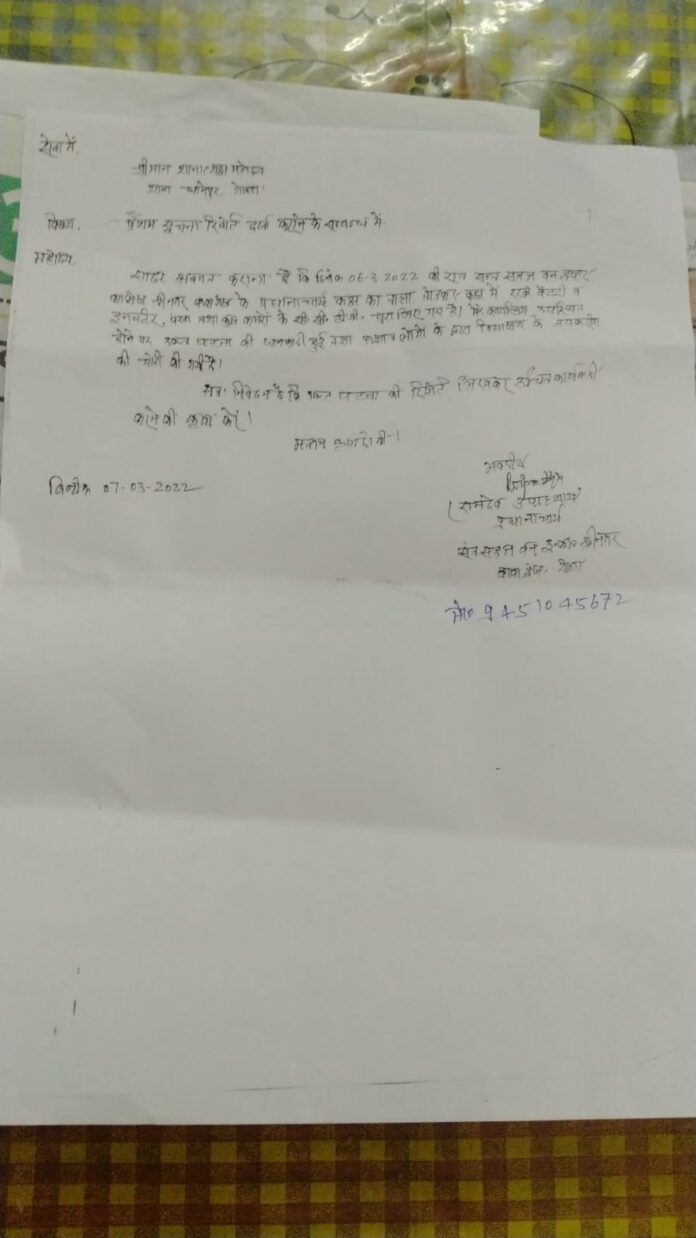 सेवा में,
श्रीमान थानाध्यक्ष महोदय
थाना
विषय. प्रथम सूचना रिपोर्ट दर्ज कराने के सम्बन्ध में.
महोदय,
सादर अवगत कराना है कि दिनांक 06-3-2022 की रात सन्त सहज वन इण्टर
कालेज श्रीनगर के प्रधानाचार्य कक्ष का ताला तोड़कर कक्ष में रखी बैटरी व
इनवर्टर, पंखा तथा कक्ष कैमरों के सी.सी.टी.वी. चुरा लिए गए है। मेरे उपस्थित
होने पर उक्त घटना की जानकारी हुई तथा अज्ञात लोगों के द्वारा विद्यालय के उपकरणों
की चोरी की गयी है।
अतः निवेदन है कि उक्त घटना की रिपोर्ट लिखकर उचित कार्यवाही
करने की कृपा करें।
महान कृपा होगी।
दिनांक 07-03-2022
भवदीय
(रामदेव उपाध्याय)
प्रधानाचार्य
संत सहज वन इ०का० श्रीनगर
मो० 9451045672